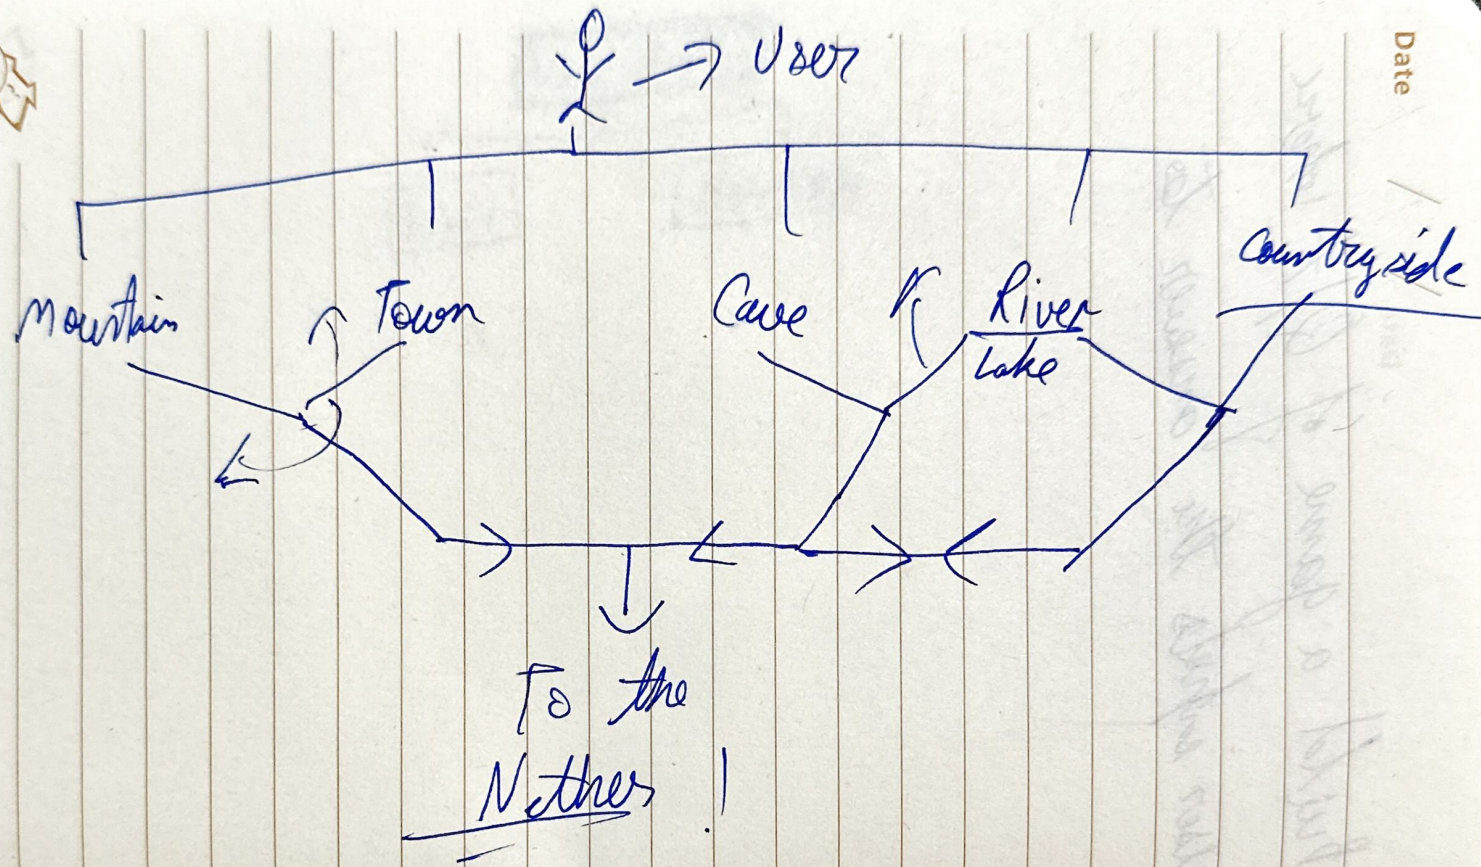 Date
→ User
Mountain
Town
Cave
River
Lake
Countryside
To the
Nether !